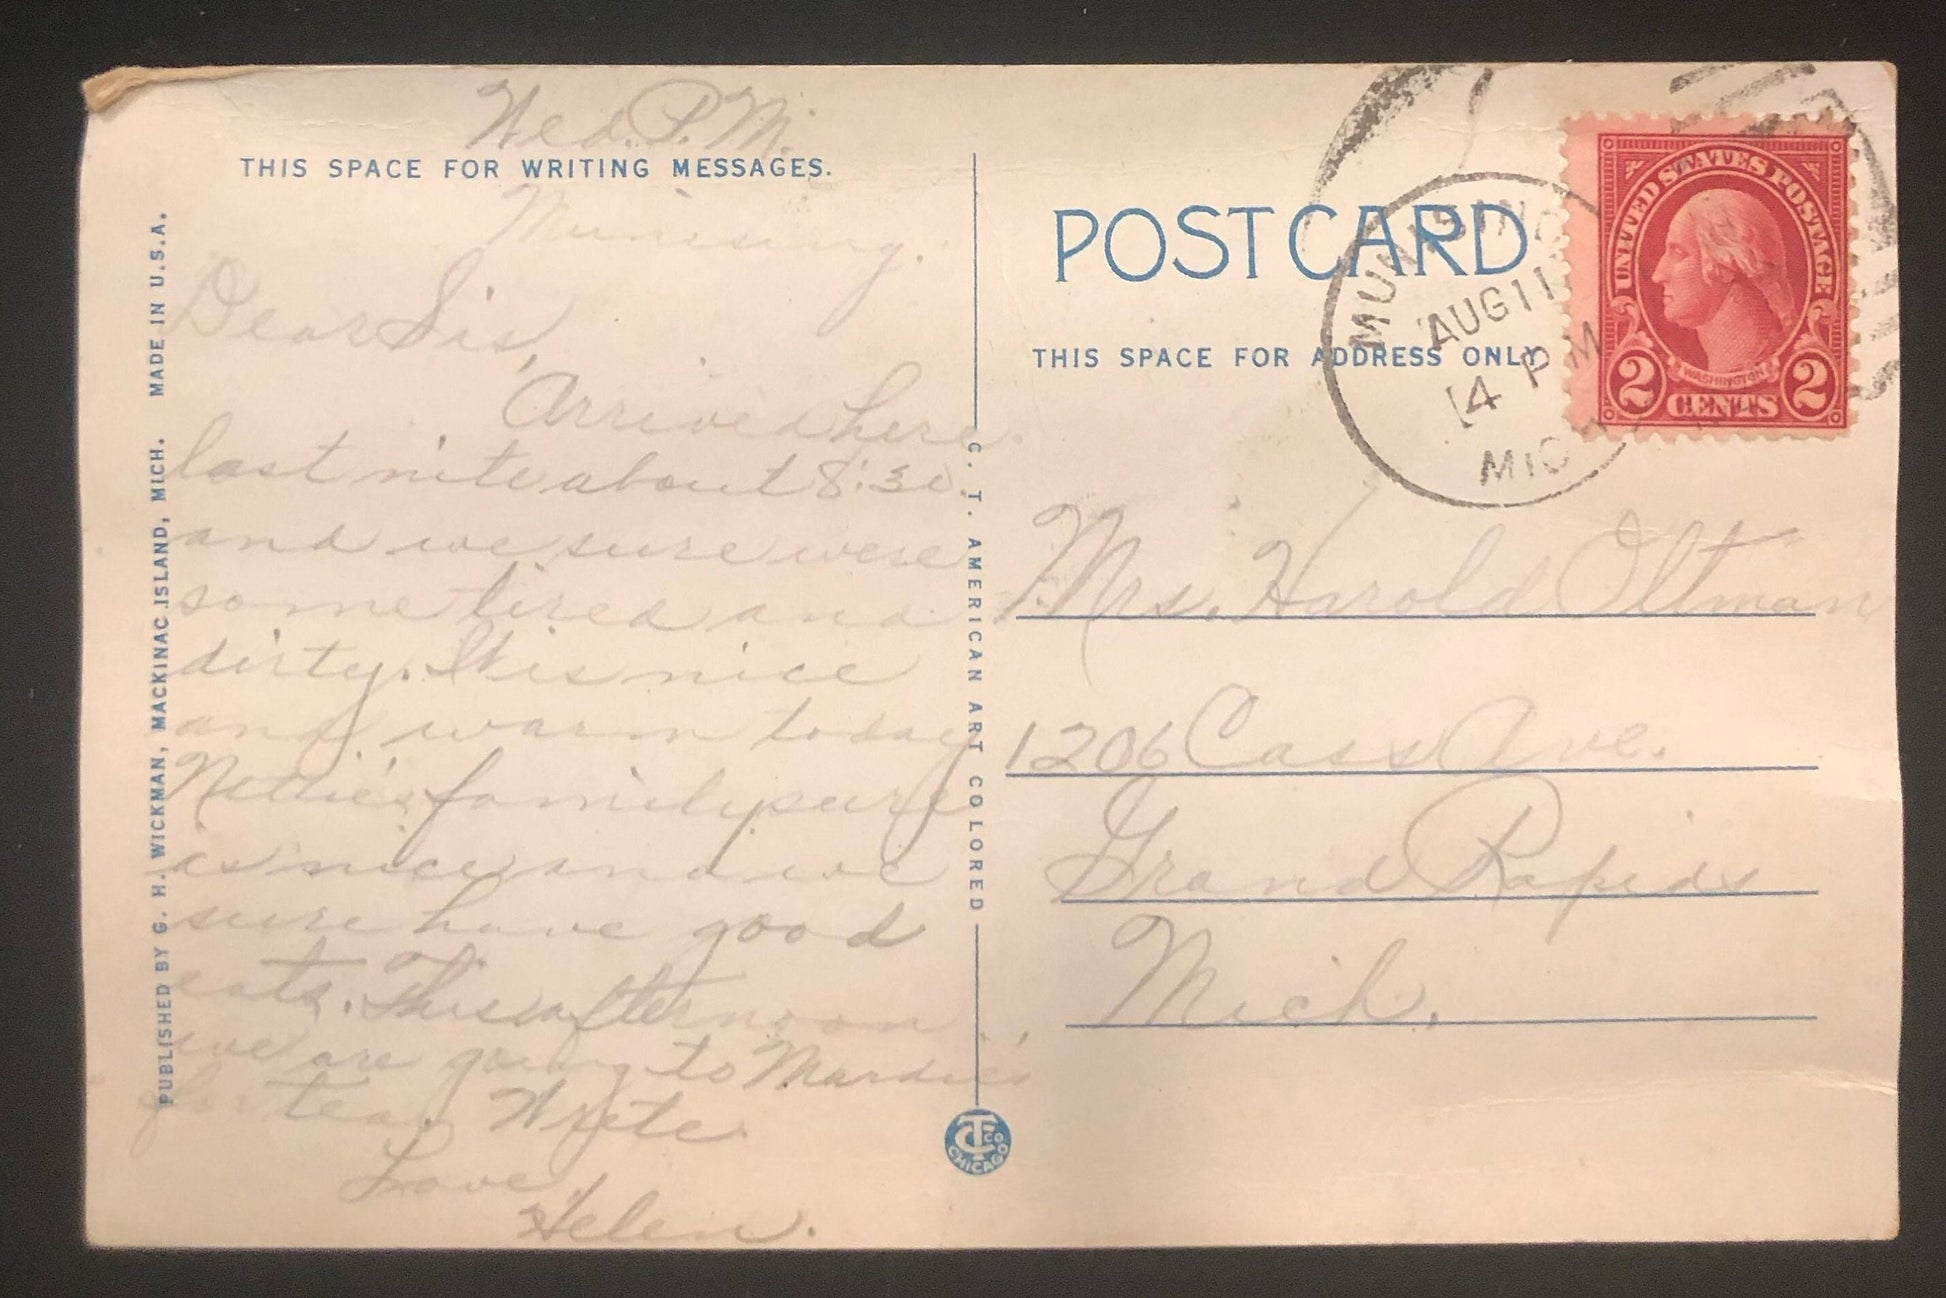 Wed. P.M.
THIS SPACE FOR WRITING MESSAGES.
Munising.
Dear Sis,
Arrived here
last nite about 8:30
and we sure were
some tired and
dirty. It is nice
and warm today
Nettie's family sure
is nice and we
sure have good
eats. This afternoon
we are going to Mardie's
for tea. Write.
Love,
Helen.
PUBLISHED BY G. H. WICKMAN, MACKINAC ISLAND, MICH. MADE IN U.S.A.
C. T. AMERICAN ART COLORED
CT CO
CHICAGO
POST CARD
THIS SPACE FOR ADDRESS ONLY
MUNISING
AUG 11
4 PM
MICH
UNITED STATES POSTAGE
WASHINGTON
2 CENTS 2
Mrs. Harold Oltman
1206 Cass Ave.
Grand Rapids
Mich.